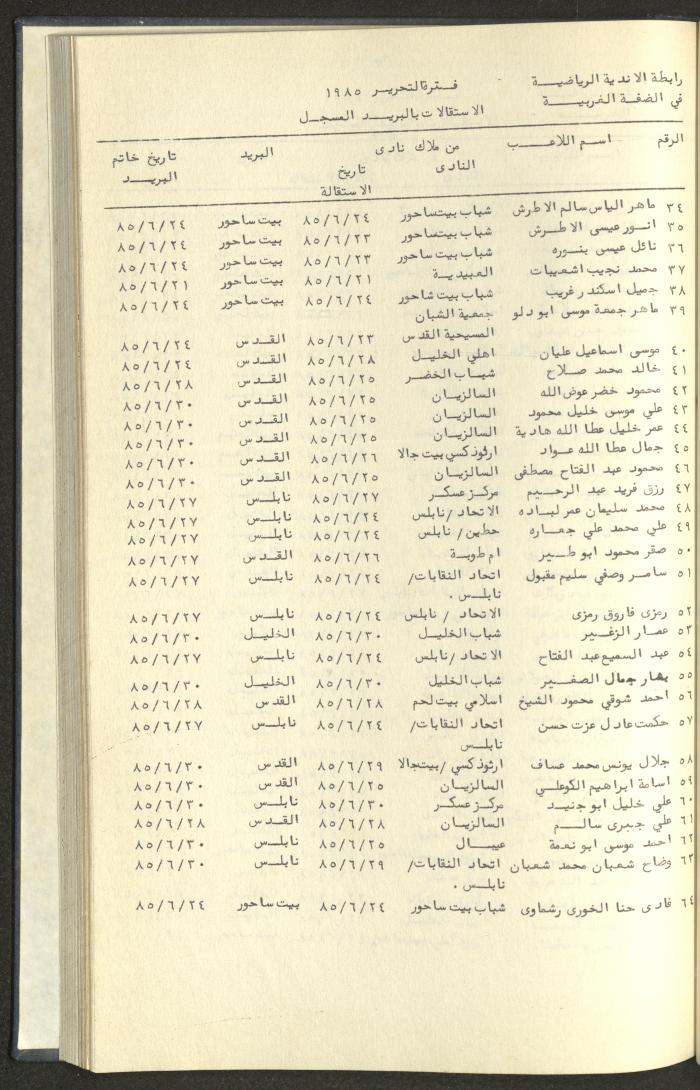 رابطة الاندية الرياضيــة
في الضفة الغربيـــة
فـترة التحريـر ١٩٨٥
الاستقالات بالبريـد المسجـل
الرقم اسم اللاعــب من ملاك نادى البريد تاريخ خاتم
النادى تاريخ البريــد
الاستقالة
٣٤ ماهر الياس سالم الاطرش شباب بيتساحور ٨٥/٦/٢٤ بيت ساحور ٨٥/٦/٢٤
٣٥ انـور عيسى الاطـرش شباب بيتساحور ٨٥/٦/٢٣ بيت ساحور ٨٥/٦/٢٤
٣٦ نائل عيسى بنـوره شباب بيت ساحور ٨٥/٦/٢٣ بيت ساحور ٨٥/٦/٢٤
٣٧ محمد نجيب اشعيبات العبيديـة ٨٥/٦/٢١ بيت ساحور ٨٥/٦/٢١
٣٨ جميل اسكندر غريب شباب بيت شاحور ٨٥/٦/٢٤ بيت ساحور ٨٥/٦/٢٤
٣٩ ماهر جمعة موسى ابو دلو جمعية الشبان
المسيحية القدس ٨٥/٦/٢٣ القـدس ٨٥/٦/٢٤
٤٠ موسى اسماعيل عليان اهلي الخليـل ٨٥/٦/٢٨ القـدس ٨٥/٦/٢٤
٤١ خالد محمد صـلاح شبـاب الخضـر ٨٥/٦/٢٥ القـدس ٨٥/٦/٢٨
٤٢ محمود خضر عوض الله السالزيـان ٨٥/٦/٢٥ القـدس ٨٥/٦/٣٠
٤٣ علي موسى خليل محمود السالزيـان ٨٥/٦/٢٥ القـدس ٨٥/٦/٣٠
٤٤ عمر خليل عطا الله هادية السالزيـان ٨٥/٦/٢٥ القـدس ٨٥/٦/٣٠
٤٥ جمال عطا الله عـواد ارثوذكسي بيت جالا ٨٥/٦/٢٦ القـدس ٨٥/٦/٣٠
٤٦ محمود عبد الفتاح مصطفى السالزيـان ٨٥/٦/٢٥ القـدس ٨٥/٦/٣٠
٤٧ رزق فريد عبد الرحـيم مركـز عسكـر ٨٥/٦/٢٧ نابلـس ٨٥/٦/٢٧
٤٨ محمد سليمان عمر لبـاده الاتحاد/نابلس ٨٥/٦/٢٤ نابلـس ٨٥/٦/٢٧
٤٩ علي محمد علي جعـاره حطين/ نابلس ٨٥/٦/٢٤ نابلـس ٨٥/٦/٢٧
٥٠ صقر محمود ابو طـير ام طوبـة ٨٥/٦/٢٦ القـدس ٨٥/٦/٢٧
٥١ سامـر وصفي سليم مقبول اتحاد النقابات/ ٨٥/٦/٢٤ نابلـس ٨٥/٦/٢٧
نابلـس .
٥٢ رمزى فاروق رمزى الاتحاد / نابلس ٨٥/٦/٢٤ نابلـس ٨٥/٦/٢٧
٥٣ عمـار الزغـير شباب الخليـل ٨٥/٦/٣٠ الخليـل ٨٥/٦/٣٠
٥٤ عبد السميع عبد الفتاح الاتحاد /نابلس ٨٥/٦/٢٤ نابلـس ٨٥/٦/٢٧
٥٥ بشار جمال الصغـير شباب الخليل ٨٥/٦/٣٠ الخليـل ٨٥/٦/٣٠
٥٦ احمد شوقي محمود الشيخ اسلامي بيت لحم ٨٥/٦/٢٨ القدس ٨٥/٦/٢٨
٥٧ حكمت عادل عزت حسن اتحاد النقابات/ ٨٥/٦/٢٤ نابلـس ٨٥/٦/٢٧
نابلـس
٥٨ جلال يونس محمد عساف ارثوذكسي /بيتجالا ٨٥/٦/٢٩ القدس ٨٥/٦/٣٠
٥٩ اسامة ابراهيم الكوعلـي السالزيـان ٨٥/٦/٢٥ القدس ٨٥/٦/٣٠
٦٠ علي خليل ابو جنيـد مركـز عسكـر ٨٥/٦/٣٠ نابلـس ٨٥/٦/٣٠
٦١ علي جبرى سالـم السالزيـان ٨٥/٦/٢٨ القـدس ٨٥/٦/٢٨
٦٢ احمد موسى ابو نعمة عيبـال ٨٥/٦/٢٥ نابلـس ٨٥/٦/٣٠
٦٣ وضاح شعبان محمد شعبان اتحاد النقابات/ ٨٥/٦/٢٩ نابلـس ٨٥/٦/٣٠
نابلـس .
٦٤ فادى حنا الخورى رشماوى شباب بيت ساحور ٨٥/٦/٢٤ بيت ساحور ٨٥/٦/٢٤